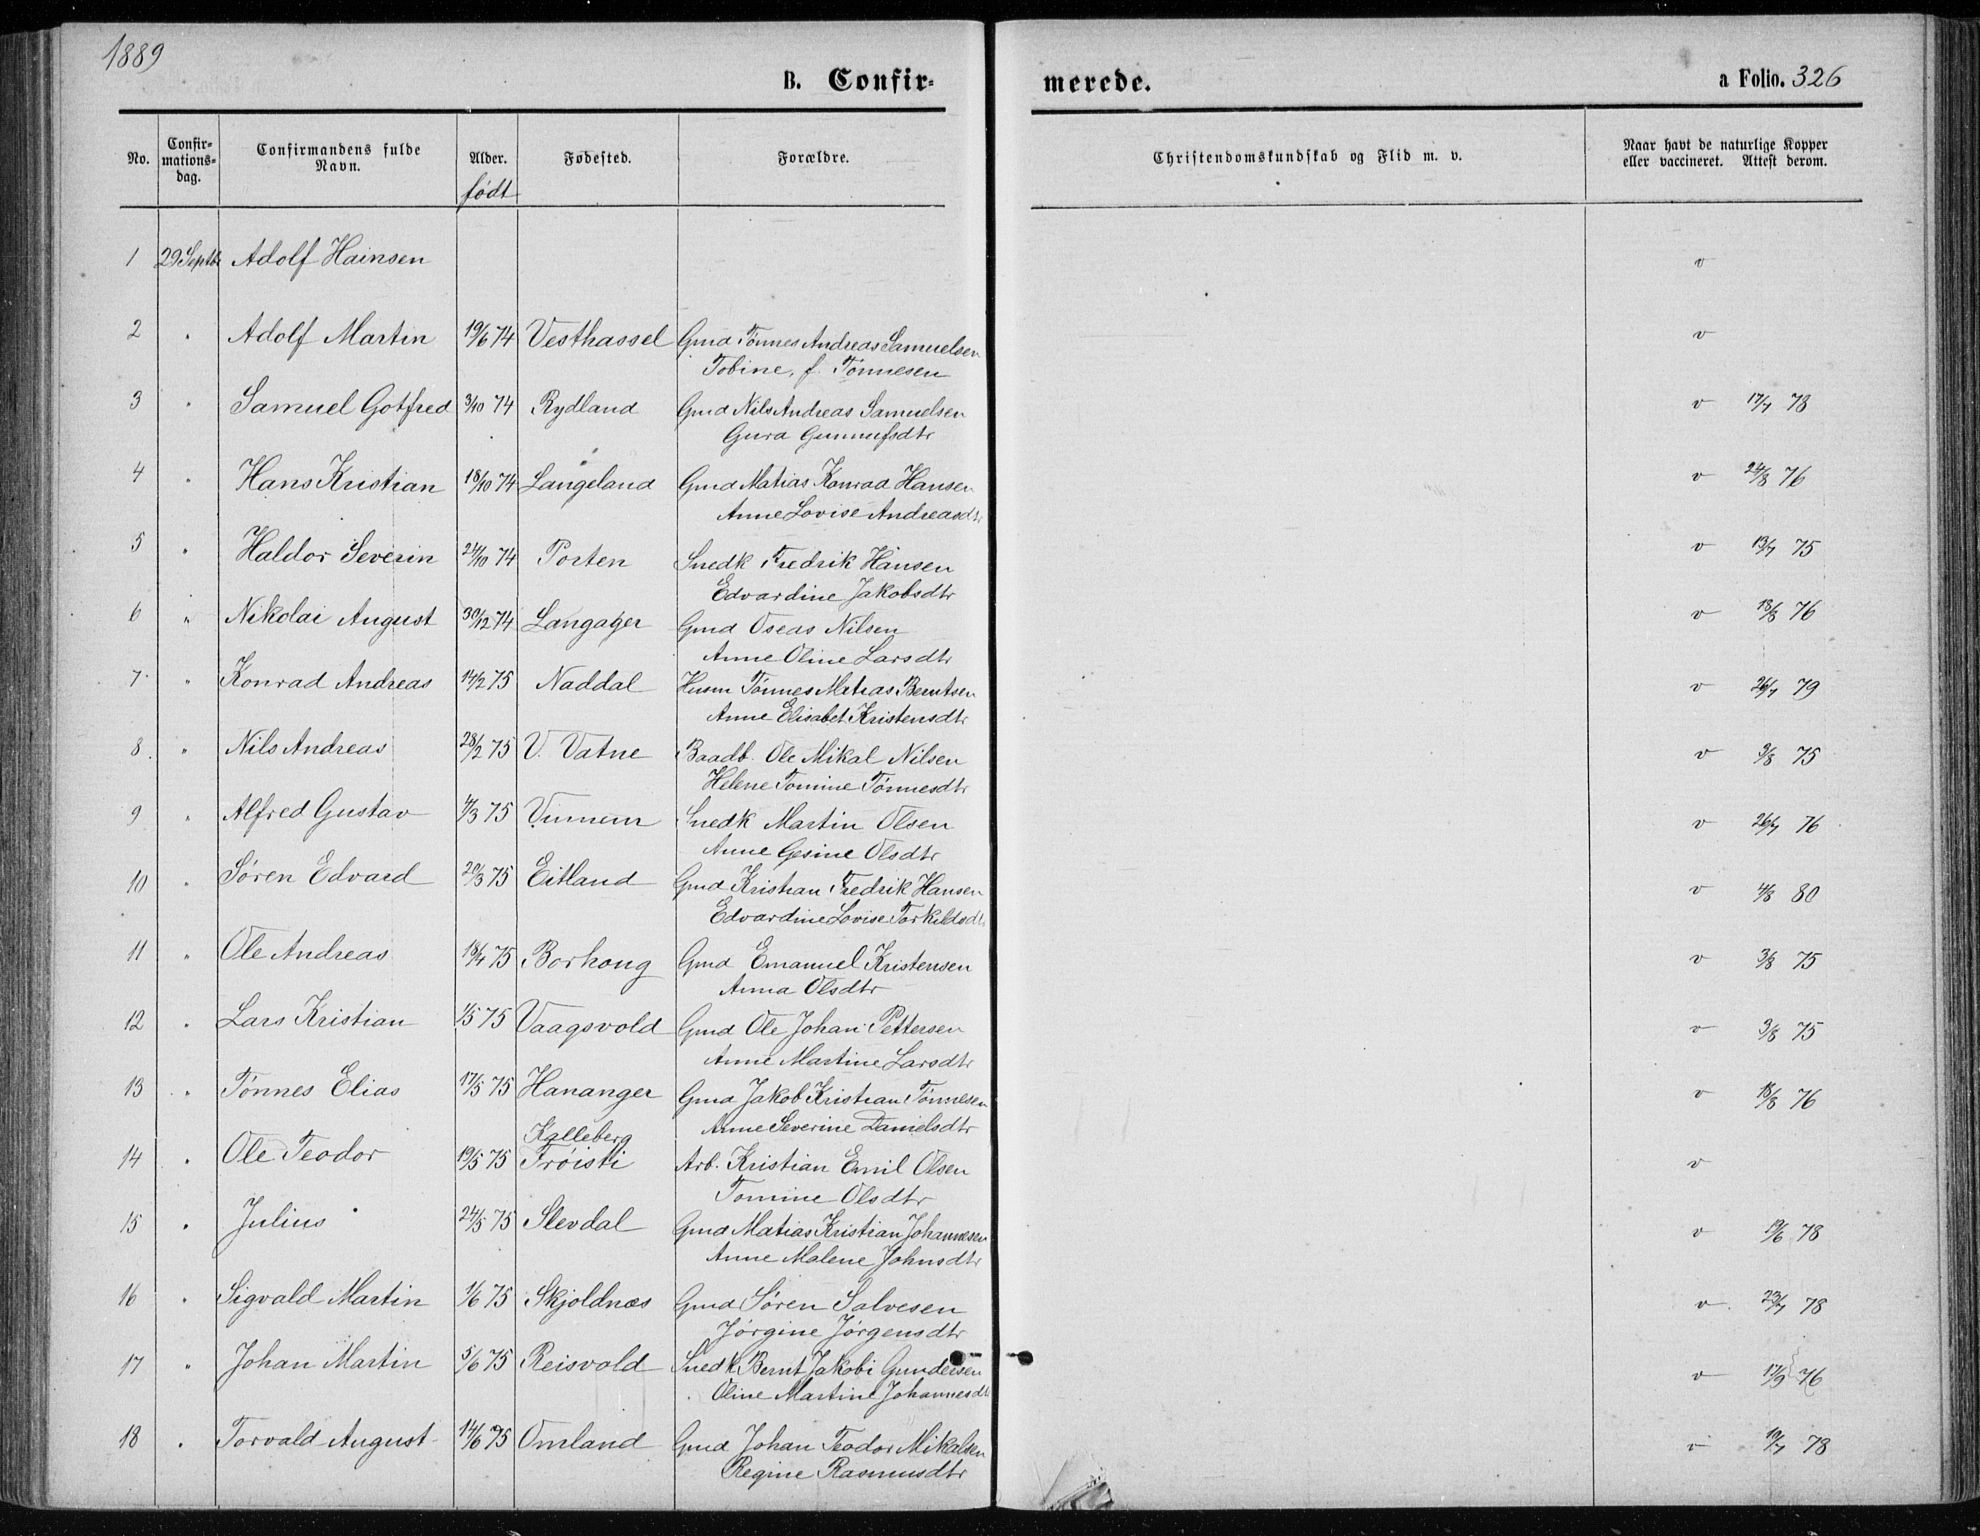 1889
B. Confir-
merede.
a Folio. 326
No. Confir-mations-dag. Confirmandens fulde Navn. Alder. født Fødested. Forældre. Christendomskundskab og Flid m. v. Naar havt de naturlige Kopper eller vaccineret. Attest derom.
1 29 Septbr Adolf Hainsen v
2 " Adolf Martin 19/6 74 Vesthassel Gmd Tønnes Andreas Samuelsen v
Tobine, f. Tønnesen
3 " Samuel Gotfred 3/10 74 Rydland Gmd Nils Andreas Samuelsen v 17/7 78
Gura Gunnufsdtr
4 " Hans Kristian 18/10 74 Langeland Gmd Matias Konrad Hansen v 24/8 76
Anne Lovise Andreasdtr
5 " Haldor Severin 24/10 74 Porten Snedk Fredrik Hansen v 13/7 75
Edvardine Jakobsdtr
6 " Nikolai August 30/12 74 Langager Gmd Oseas Nilsen v 18/8 76
Anne Oline Larsdtr
7 " Konrad Andreas 14/2 75 Naddal Husm Tønnes Matias Berntsen v 26/7 79
Anne Elisabet Kristensdtr
8. " Nils Andreas 28/2 75 V. Vatne Baadb. Ole Mikal Nilsen v 3/8 75
Helene Tomine Tønnesdtr
9 " Alfred Gustav 4/3 75 Vinnem Snedk Martin Olsen v 26/7 76
Anne Gesine Olsdtr
10 " Søren Edvard 20/3 75 Eitland Gmd Kristian Fredrik Hansen v 4/8 80
Edvardine Lovise Torkildsdtr
11 " Ole Andreas 18/4 75 Borhoug Gmd Emanuel Kristensen v 3/8 75
Anna Olsdtr
12 " Lars Kristian 1/5 75 Vaagsvold Gmd Ole Johan Pettersen v 3/8 75
Anne Martine Larsdtr
13 " Tønnes Elias 17/5 75 Hananger Gmd Jakob Kristian Tønnesen v 18/8 76
Anne Severine Danielsdtr
Kalleberg
14 " Ole Teodor 19/5 75 Trøisti Arb. Kristian Emil Olsen v
Tomine Olsdtr
15 " Julius 24/5 75 Slevdal Gmd Matias Kristian Johannesen v 19/6 78
Anne Malene Johnsdtr
16 " Sigvald Martin 1/6 75 Skjoldnæs Gmd Søren Salvesen v 23/7 78
Jørgine Jørgensdtr
17 " Johan Martin 5/6 75 Reisvold Snedk Bernt Jakobi Gundersen v 17/9 76
Oline Martine Johannesdtr
18 " Torvald August 14/6 75 Omland Gmd Johan Teodor Mikalsen v 10/7 78
Regine Rasmusdtr